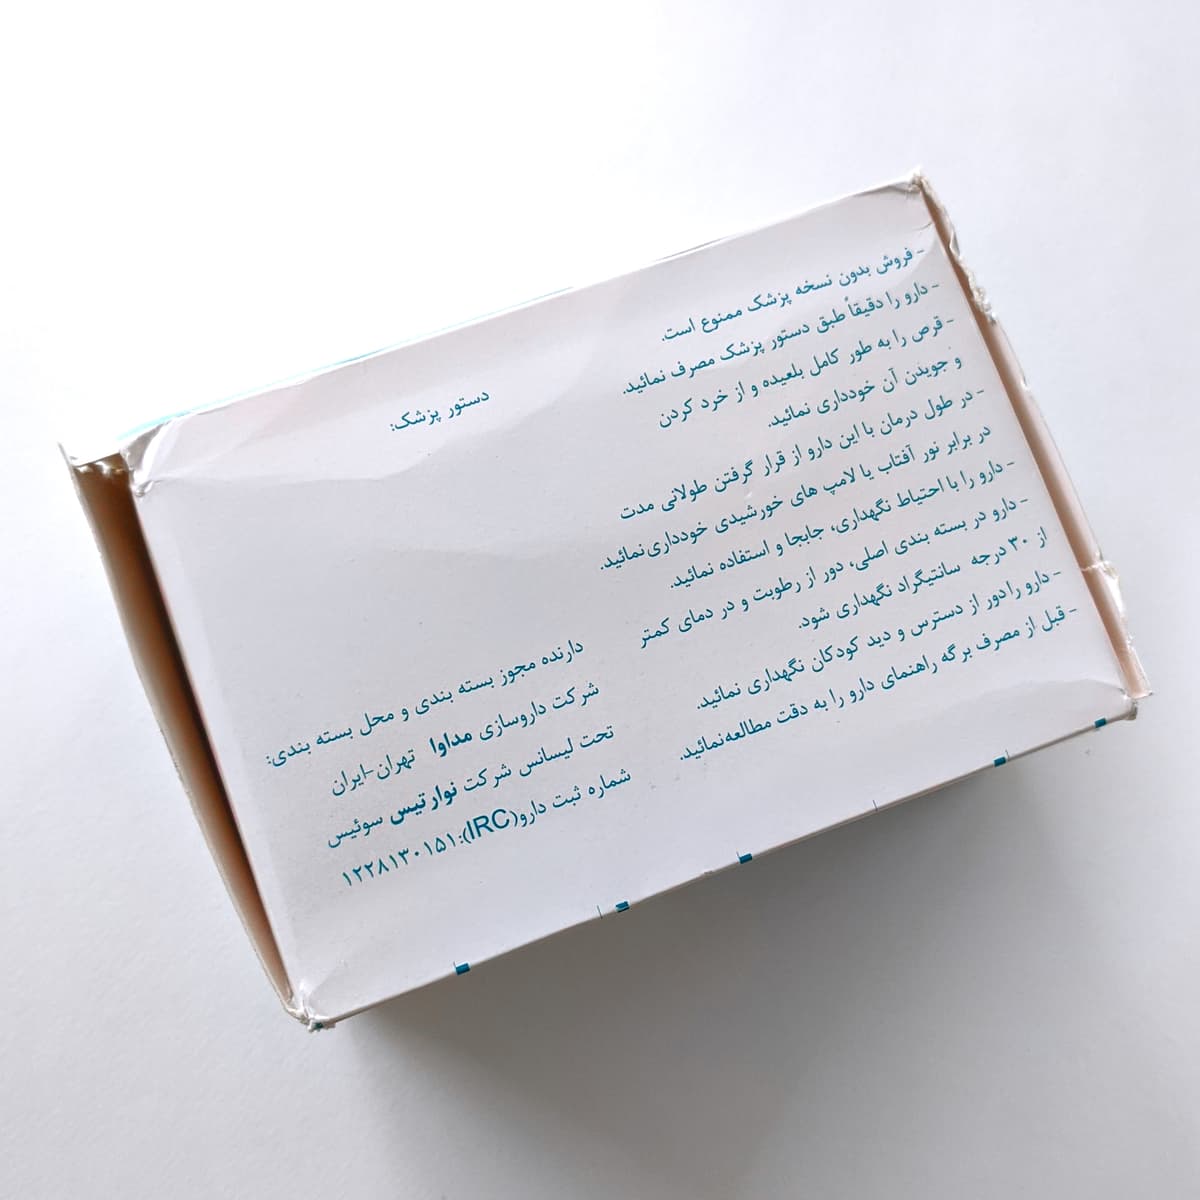 - فروش بدون نسخه پزشک ممنوع است.
- دارو را دقیقاً طبق دستور پزشک مصرف نمائید.
- قرص را به طور کامل بلعیده و از خرد کردن
و جویدن آن خودداری نمائید.
- در طول درمان با این دارو از قرار گرفتن طولانی مدت
در برابر نور آفتاب یا لامپ های خورشیدی خودداری نمائید.
- دارو را با احتیاط نگهداری، جابجا و استفاده نمائید.
- دارو در بسته بندی اصلی، دور از رطوبت و در دمای کمتر
از ۳۰ درجه سانتیگراد نگهداری شود.
- دارو را دور از دسترس و دید کودکان نگهداری نمائید.
- قبل از مصرف برگه راهنمای دارو را به دقت مطالعه نمائید.
دستور پزشک:
دارنده مجوز بسته بندی و محل بسته بندی:
شرکت داروسازی مداوا تهران-ایران
تحت لیسانس شرکت نوارتیس سوئیس
شماره ثبت دارو(IRC):۱۲۲۸۱۳۰۱۵۱